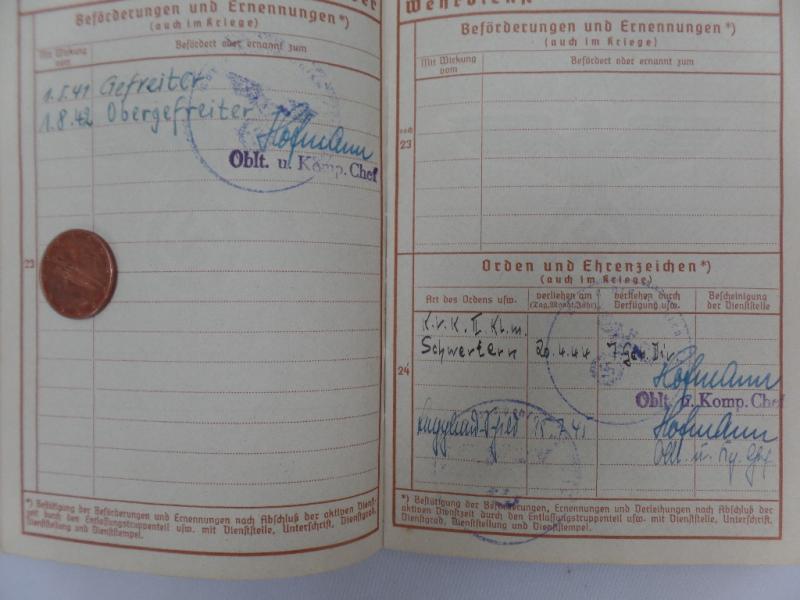 Beförderungen und Ernennungen *)
(auch im Kriege)
Mit Wirkung vom
Befördert oder ernannt zum
1.5.41 Gefreiter
1.8.42 Obergefreiter
Hofmann
Oblt. u. Komp. Chef
23
*) Bestätigung der Beförderungen und Ernennungen nach Abschluß der aktiven Dienst-
zeit durch den Entlassungstruppenteil usw. mit Dienststelle, Unterschrift, Dienstgrad,
Dienststellung und Dienststempel.
Wehrdienst
Beförderungen und Ernennungen *)
(auch im Kriege)
Mit Wirkung vom
Befördert oder ernannt zum
noch
23
Orden und Ehrenzeichen *)
(auch im Kriege)
Art des Ordens usw.
verliehen am
(Tag, Monat, Jahr)
verliehen durch
Verfügung usw.
Bescheinigung
der Dienststelle
K.v.K. II. Kl. m.
Schwertern 20.4.44 7 Geb. Div.
Hofmann
24
Oblt. u. Komp. Chef
Hofmann
Oblt. u.
*) Bestätigung der Beförderungen, Ernennungen und Verleihungen nach Abschluß der
aktiven Dienstzeit durch den Entlassungstruppenteil usw. mit Dienststelle, Unterschrift,
Dienstgrad, Dienststellung und Dienststempel.